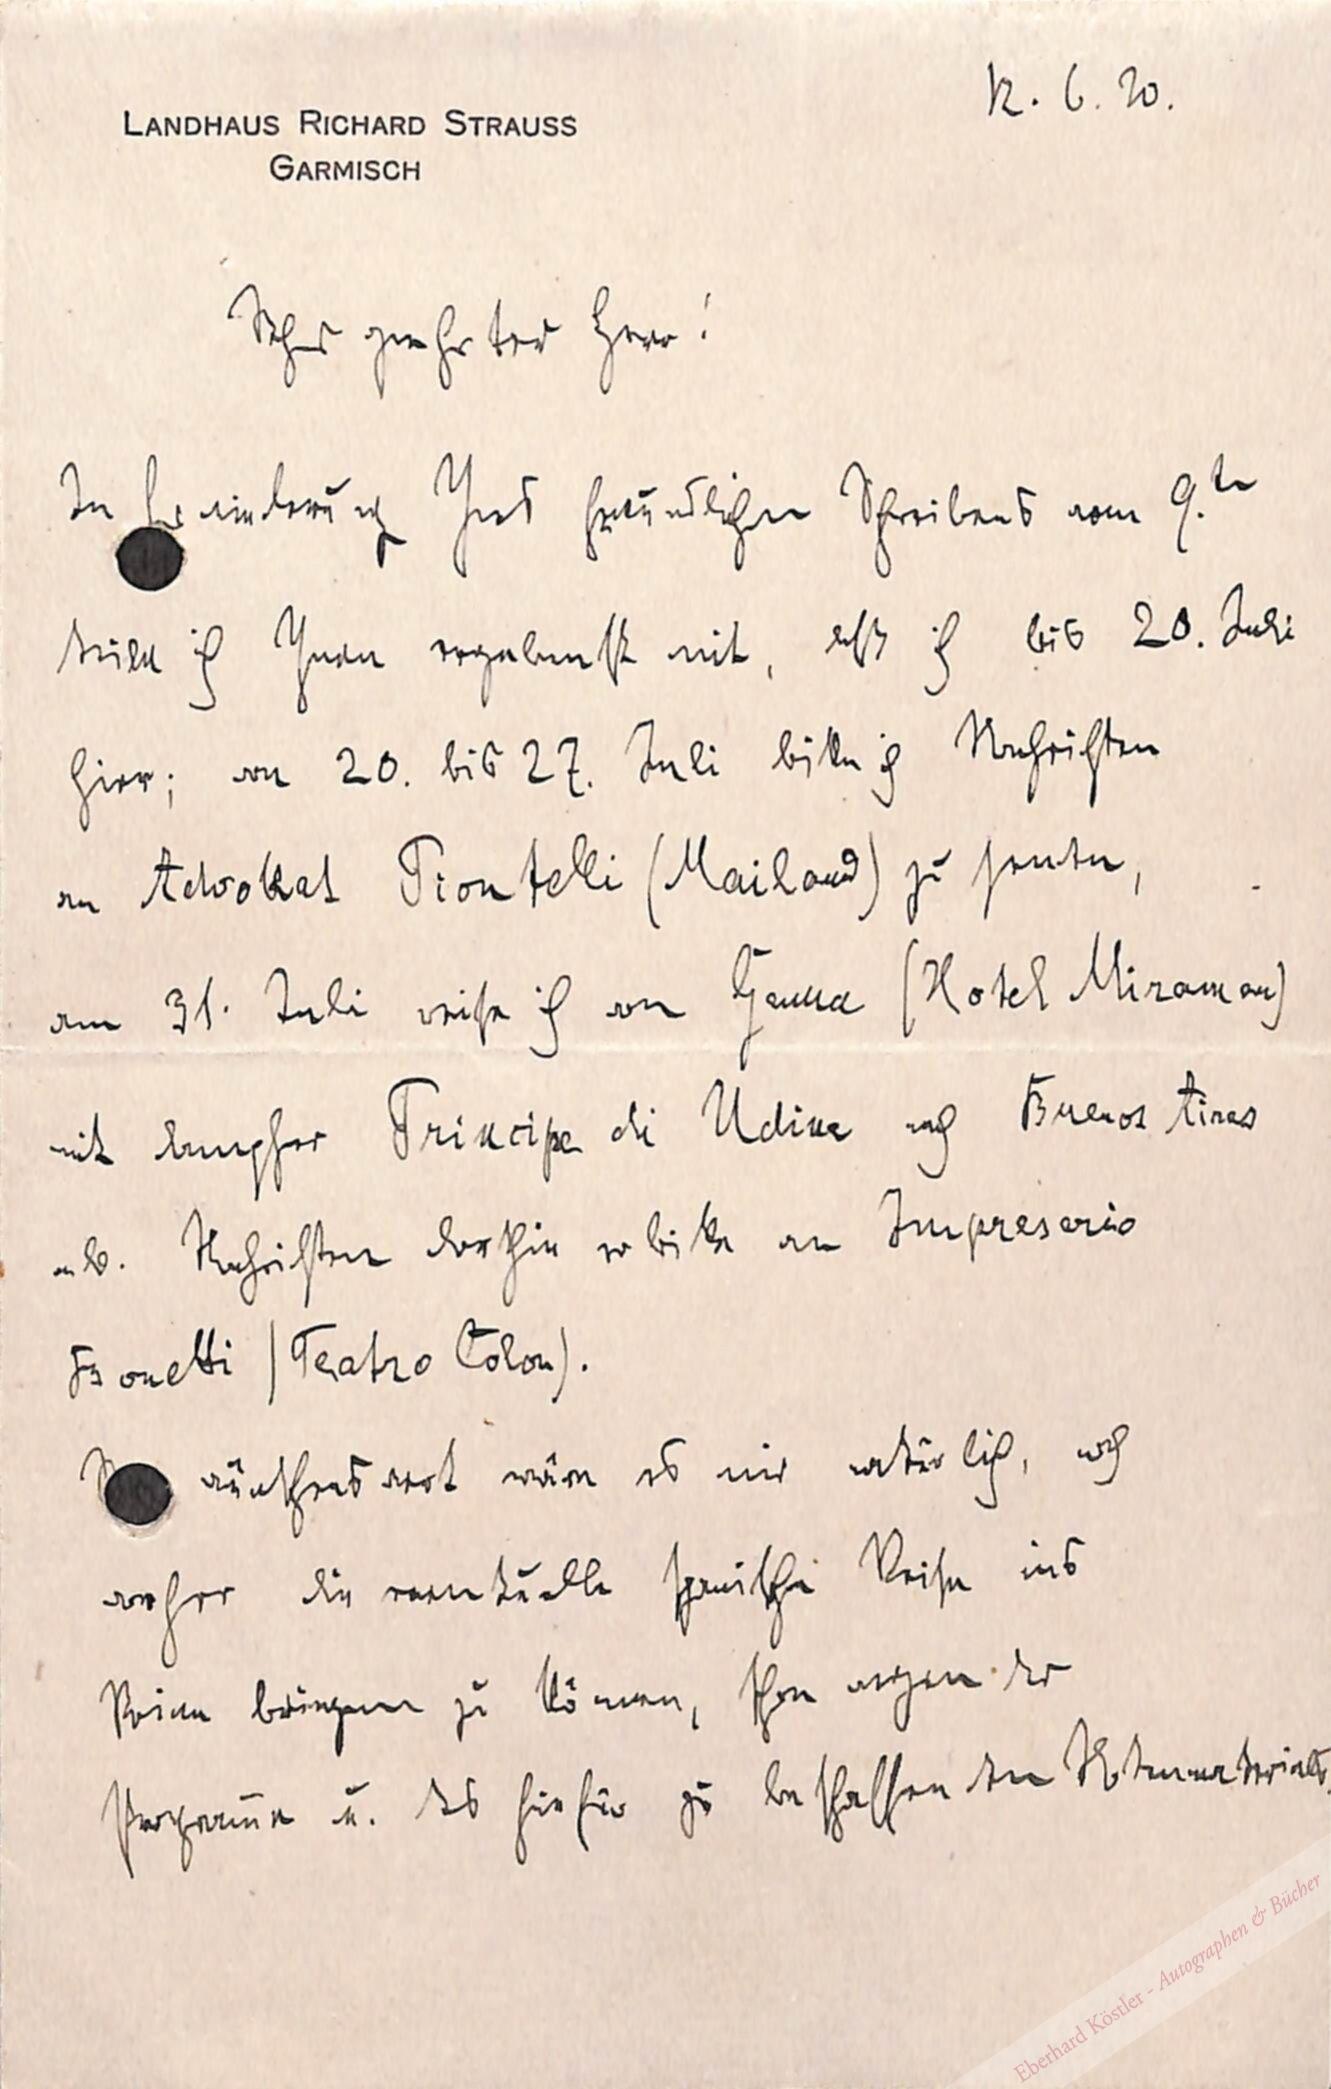 12. 6. 20.
LANDHAUS RICHARD STRAUSS
GARMISCH
Sehr geehrter Herr!
In Erwiderung Ihres freundlichen Schreibens vom 9.ten
teile ich Ihnen ergebenst mit, daß ich bis 20. Juli
hier; von 20. bis 27. Juli bitte ich Nachrichten
an Advokat Piontelli (Mailand) zu senden,
am 31. Juli reise ich von Genua (Hotel Miramar)
mit Dampfer Principe di Udine nach Buenos Aires
ab. Nachrichten dorthin erbitte an Impresario
Bonetti (Teatro Colon).
wünschenswert wäre es mir natürlich, noch
vorher die eventuelle spanische Reise ins
Reine bringen zu können, schon wegen der
Programme u. des hiefür zu beschaffenden Notenmaterials.
Eberhard Köstler - Autographen & Bücher